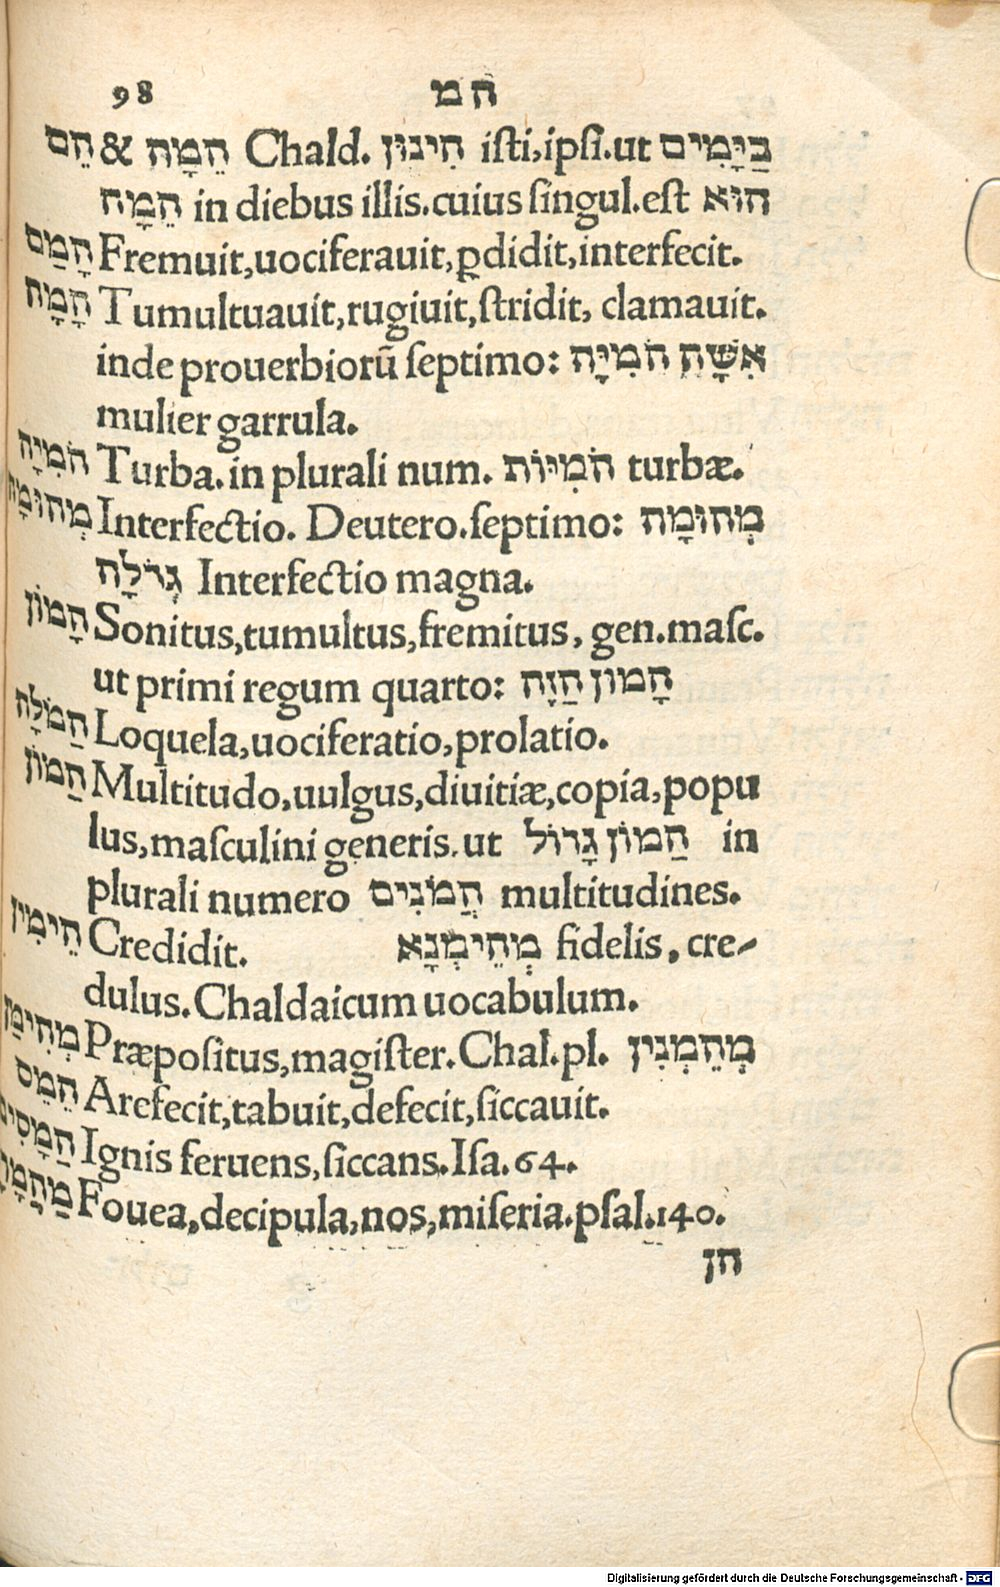 98 המ
הֵם & הֵמָּה Chald. הִינוּן iſti,ipſi.ut בַּיָּמִים
הֵמָּה in diebus illis.cuius ſingul.eſt הוּא
הָמַם Fremuit,uociferauit,ꝑdidit,interfecit.
הָמָה Tumultuauit,rugiuit,ſtridit, clamauit.
inde prouerbiorũ ſeptimo: אִשָּׁה הֹמִיָּה
mulier garrula.
הֹמִיָּה Turba.in plurali num. הֹמִיּוֹת turbæ.
מְהוּמָה Interfectio. Deutero.ſeptimo: מְהוּמָה
גְדֹלָה Interfectio magna.
הָמוֹן Sonitus,tumultus,fremitus, gen.maſc.
ut primi regum quarto: הָמוֹן הַזֶה
הַמֹלָה Loquela,uociferatio,prolatio.
הַמוֹן Multitudo,uulgus,diuitiæ,copia,popu
lus,maſculini generis.ut הַמוֹן גָדוֹל in
plurali numero הֲמֹנִים multitudines.
הֵימִין Credidit. מְהֵימְנָא fidelis, cre-
dulus.Chaldaicum uocabulum.
מְהִימַן Præpoſitus,magiſter.Chal.pl. מְהֵמְנִין
הֵמֵס Arefecit,tabuit,defecit,ſiccauit.
הַמָסִים Ignis feruens,ſiccans.Iſa.64.
Fouea,decipula,nos,miſeria.pſal.140.
הן
Digitalisierung gefördert durch die Deutsche Forschungsgemeinschaft - DFG